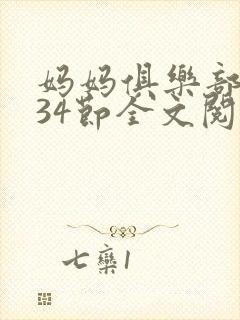 妈妈俱樂部
34節全文閱
七欒1